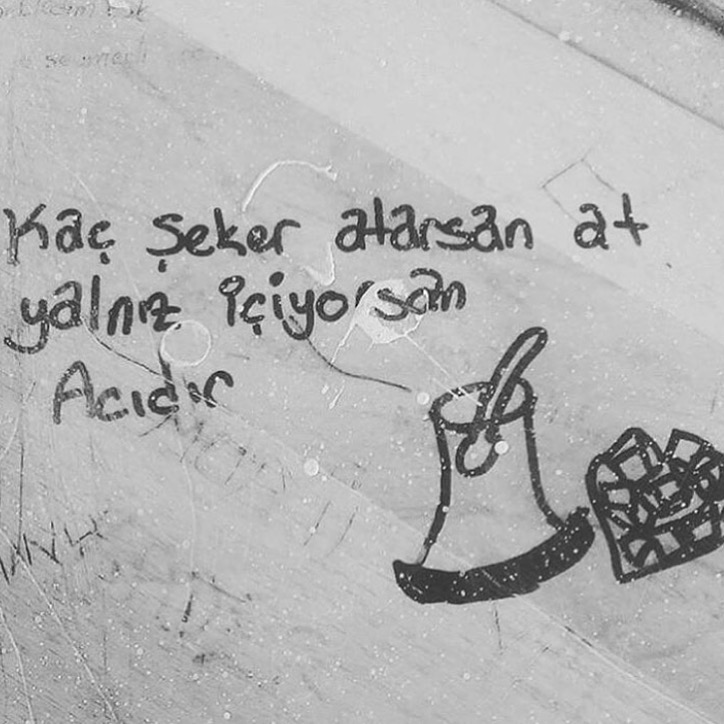 Kaç şeker atarsan at
yalnız içiyorsan
Acıdır